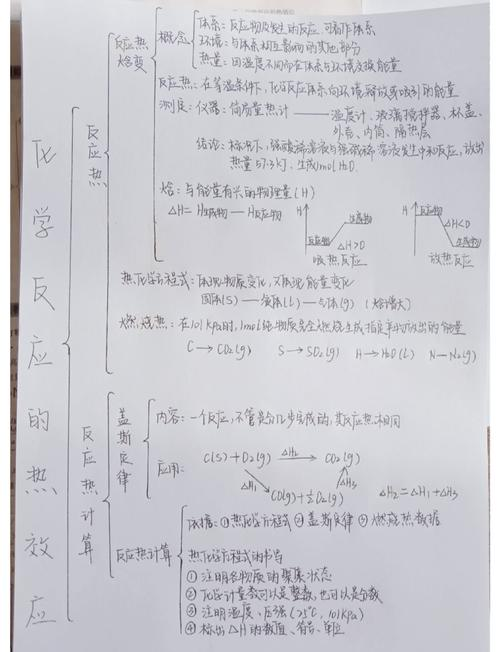 化学反应的热效应
反应热
反应热 焓变
概念
体系：反应物及发生的反应 可看作体系
环境：与体系相互影响的其他部分
热量：因温度不同而在体系与环境交换能量
反应热：在等温条件下，化学反应体系向环境释放或吸收的能量
测量：仪器：简易量热计——温度计、玻璃搅拌器、杯盖、
外壳、内筒、隔热层
结论：标况下，强酸稀溶液与强碱稀溶液发生中和反应，放出
热量57.3kJ，生成1mol H₂O.
焓：与能量有关的物理量(H)
△H= H生成物 — H反应物
H 反应物 生成物 △H>0
吸热反应
H 反应物 生成物 △H<0
放热反应
热化学方程式：体现物质变化，又体现能量变化
固体(S)——液体(L)——气体(g) (焓增大)
燃烧热：在101kPa时，1mol纯物质完全燃烧生成指定产物放出的能量
C→CO₂(g) S→SO₂(g) H→H₂O(L) N→N₂(g)
反应热计算
盖斯定律
内容：一个反应，不管是分几步完成的，其反应热相同
应用：
C(s)+O₂(g) △H₂ CO₂(g)
△H₁ △H₃
CO(g)+½O₂(g)
△H₂=△H₁+△H₃
反应热计算
依据：①热化学方程式 ②盖斯定律 ③燃烧热数据
热化学方程式的书写
①注明各物质的聚集状态
②化学计量数可以是整数，也可以是分数
③注明温度、压强(25℃, 101kPa)
④标出△H的数值、符号、单位